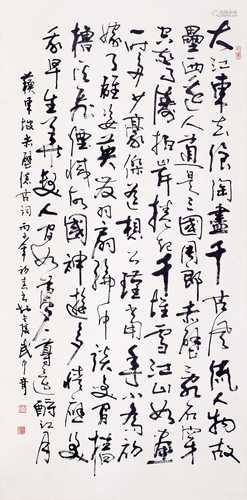 大江東去浪淘盡千古風流人物故
壘西邊人道是三國周郎赤壁亂石穿
空驚濤拍岸捲起千堆雪江山如畫
一時多少豪傑遙想公瑾當年小喬初
嫁了雄姿英發羽扇綸巾談笑間檣
櫓灰飛煙滅故國神遊多情應笑
我早生華髮人間如夢一尊還酹江月
蘇東坡赤壁懷古詞 丙子年初春 武中奇